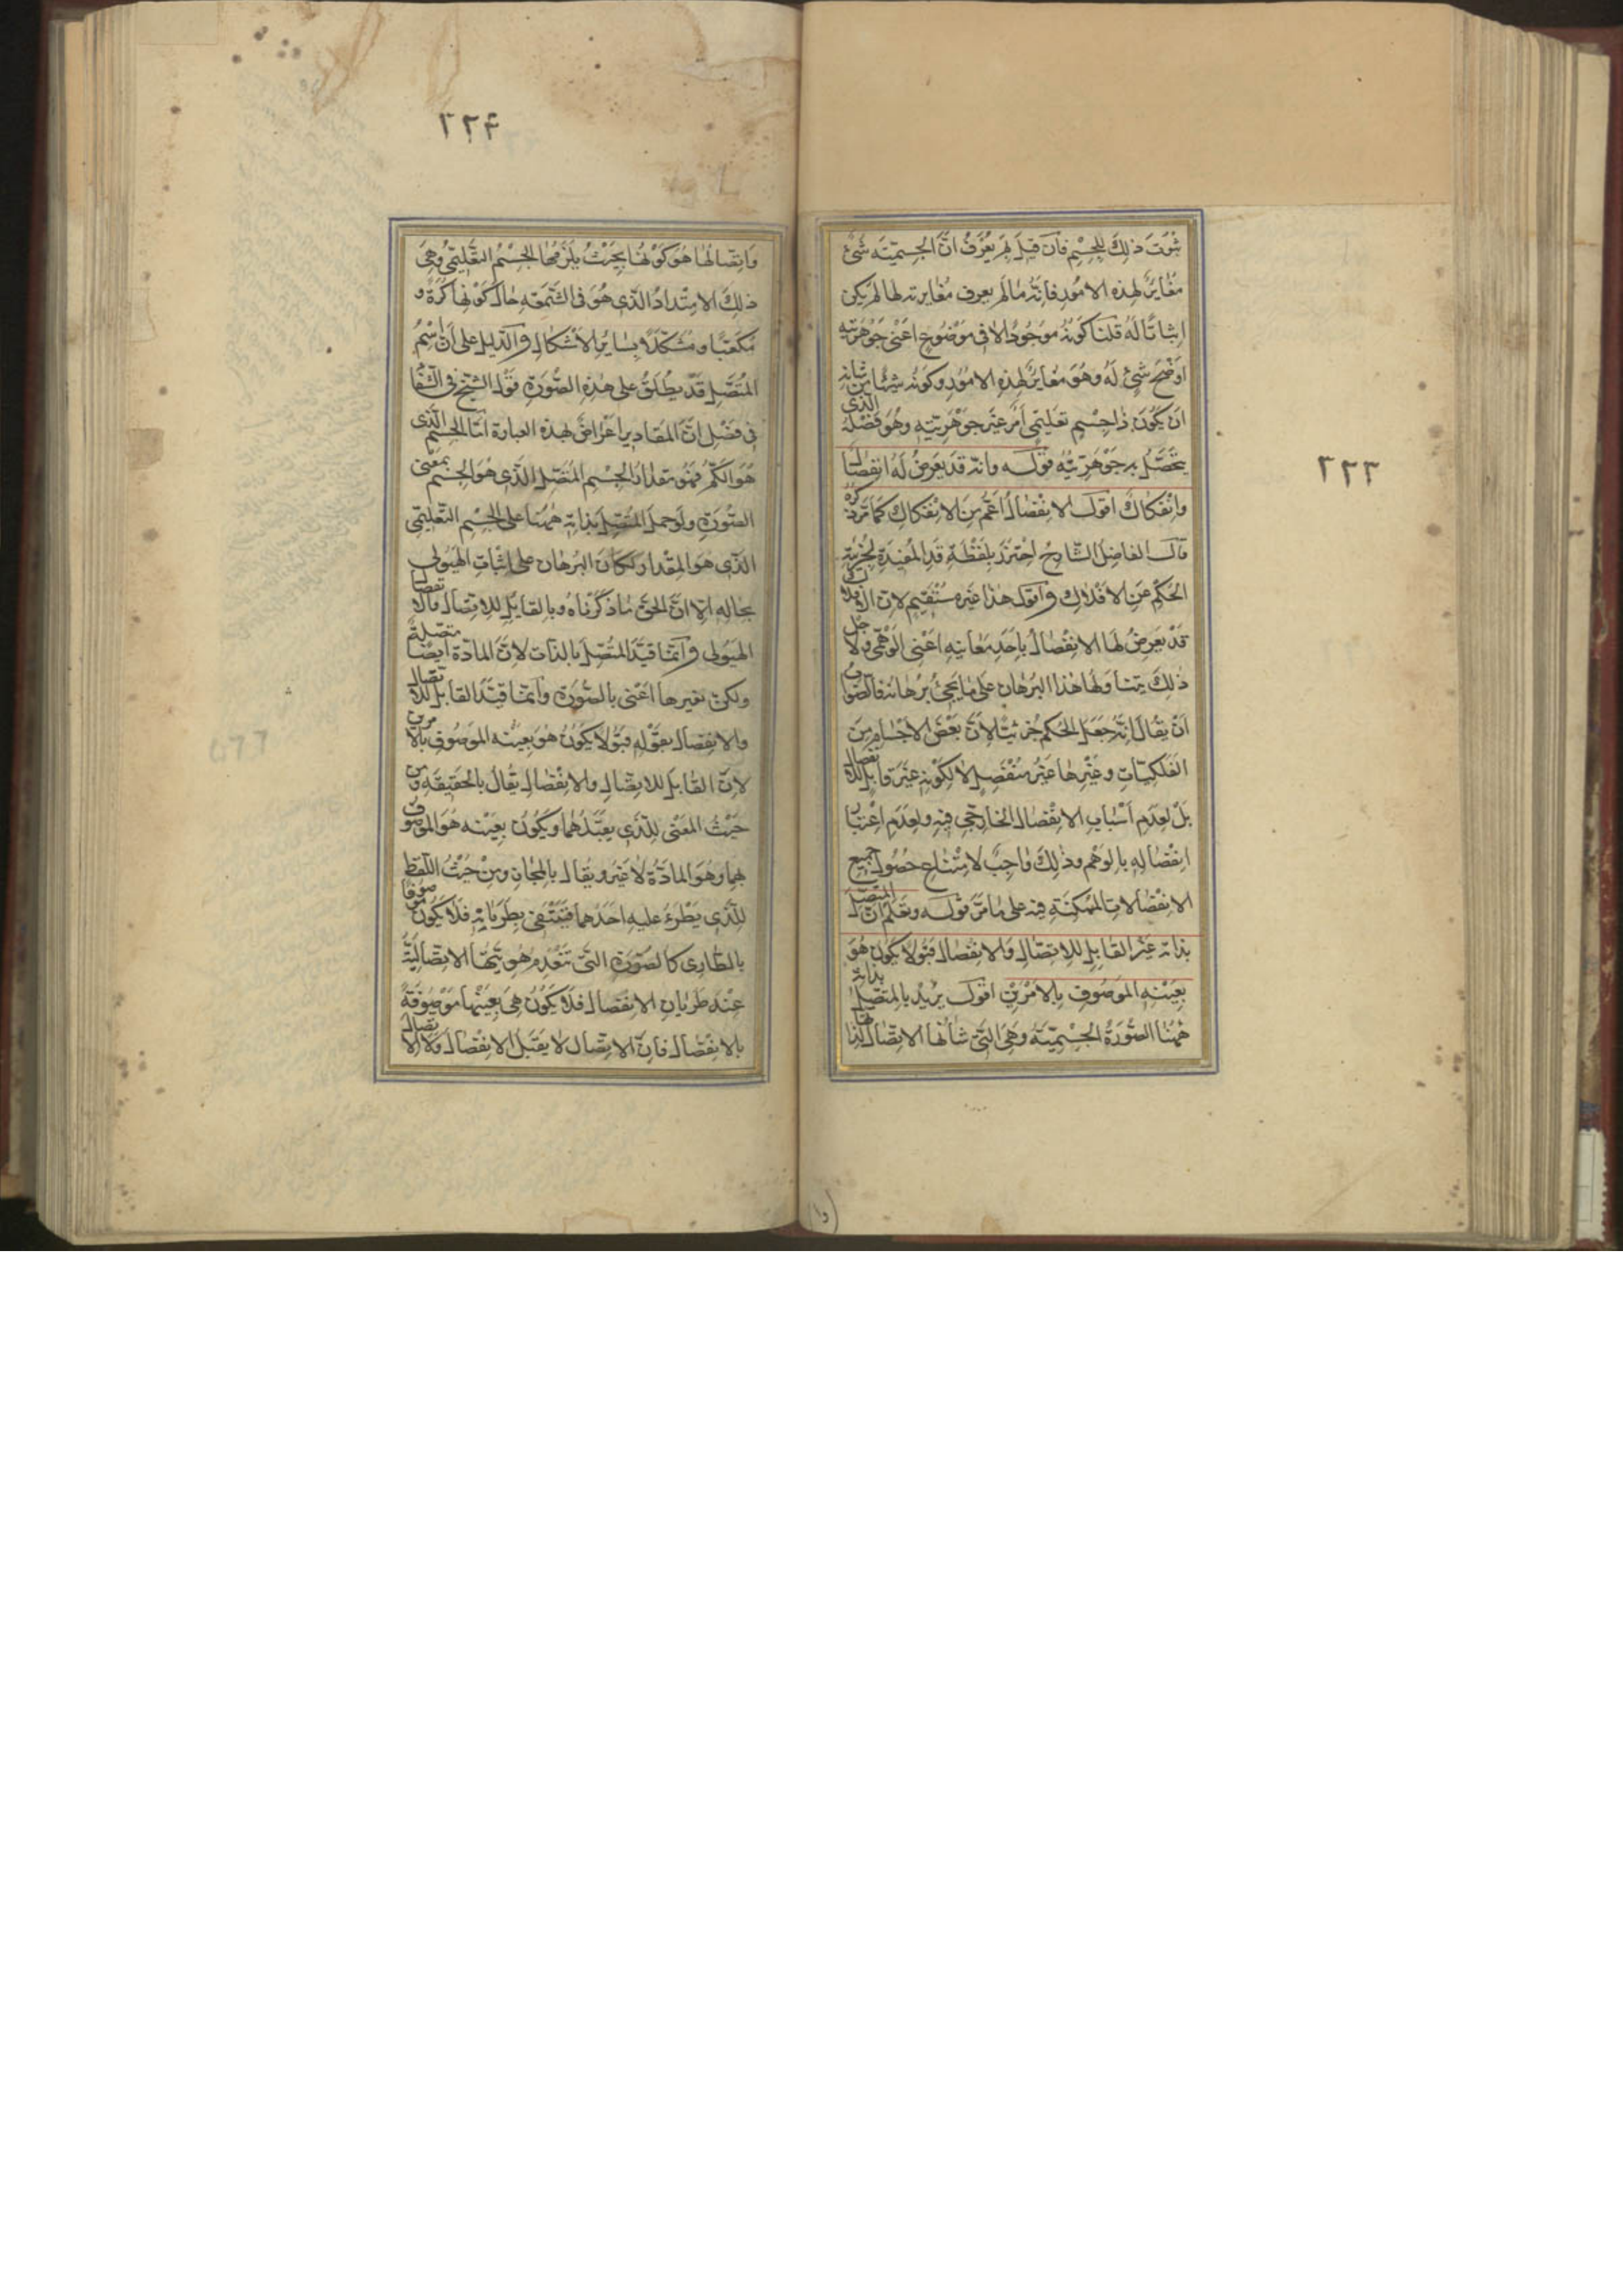 ٢٢٣
ثبوت ذلك للجسم فان قيل لم يعرف ان الجسمية شئ
مغاير لهذه الامور فانه ما لم يعرف مغايرته لها لم يكن
اثباتا له قلنا كونه موجودا لا فى موضوع اعنى جوهريته
اوضح شئ له وهو مغاير لهذه الامور وكونه شيئا من شانه
ان يكون ذا جسم تعليمى امر غير جوهريته وهو فصله الذى
يتحصل به جوهريته قوله وانه قد يعرض له انفصال
وانفكاك اقول الانفصال اعم من الانفكاك كما مر ذكره
قال الفاضل الشارح احترز بلفظة قد المفيدة لجزئية
الحكم عن الافلاك واقول هذا غير مستقيم لان الافلاك
قد يعرض لها الانفصال باحد معانيه اعنى الوهمى ولاجل
ذلك يتناولها هذا البرهان على ما يجئ برهانه فالصواب
ان يقال انه جعل الحكم جزئيا لان بعض الاجسام من
الفلكيات وغيرها غير منفصل لا لكونه غير قابل للانفصال
بل لعدم اسباب الانفصال الخارجى فيه ولعدم اعتبار
انفصاله بالوهم وذلك واجب لامتناع حصول جميع
الانفصالات الممكنة فيه على ما مر قوله وتعلم ان المتصل
بذاته غير القابل للاتصال والانفصال قبولا يكون هو
بعينه الموصوف بالامرين اقول يريد بالمتصل بذاته
ههنا الصورة الجسمية وهى التى شانها الاتصال لذاتها
٢٢۴
واتصالها هو كونها بحيث يلزمها الجسم التعليمى وهى
ذلك الامتداد الذى هو فى الشمعة حال كونها كرة و
مكعبا ومشكلا بساير الاشكال والدليل على ان اسم
المتصل قد يطلق على هذه الصورة قول الشيخ فى الشفا
فى فصل ان المقادير اعراض لهذه العبارة اما الجسم الذى
هو الكم فهو مقدار الجسم المتصل الذى هو الجسم بمعنى
الصورة ولو حمل المتصل بذاته ههنا على الجسم التعليمى
الذى هو المقدار لكان البرهان على اثبات الهيولى
بحاله الا ان الحق ما ذكرناه وبالقابل للاتصال والانفصال
الهيولى وانما قيد المتصل بالذات لان المادة ايضا متصلة
ولكن بغيرها اعنى بالصورة وانما قيد القابل للاتصال
والانفصال بقوله قبولا يكون هو بعينه الموصوف بالامرين
لان القابل للاتصال والانفصال يقال بالحقيقة ومن
حيث المعنى للذى يقبلهما ويكون بعينه هو الموصوف
بهما وهو المادة لا غير ويقال بالمجاز ومن حيث اللفظ
للذى يطرء عليه احدهما فينتفى بطريانه فلا يكون موصوفا
بالطارى كالصورة التى تنعدم هويتها الاتصالية
عند طريان الانفصال فلا يكون هى بعينها موصوفة
بالانفصال فان الاتصال لا يقبل الانفصال ولا الاتصال